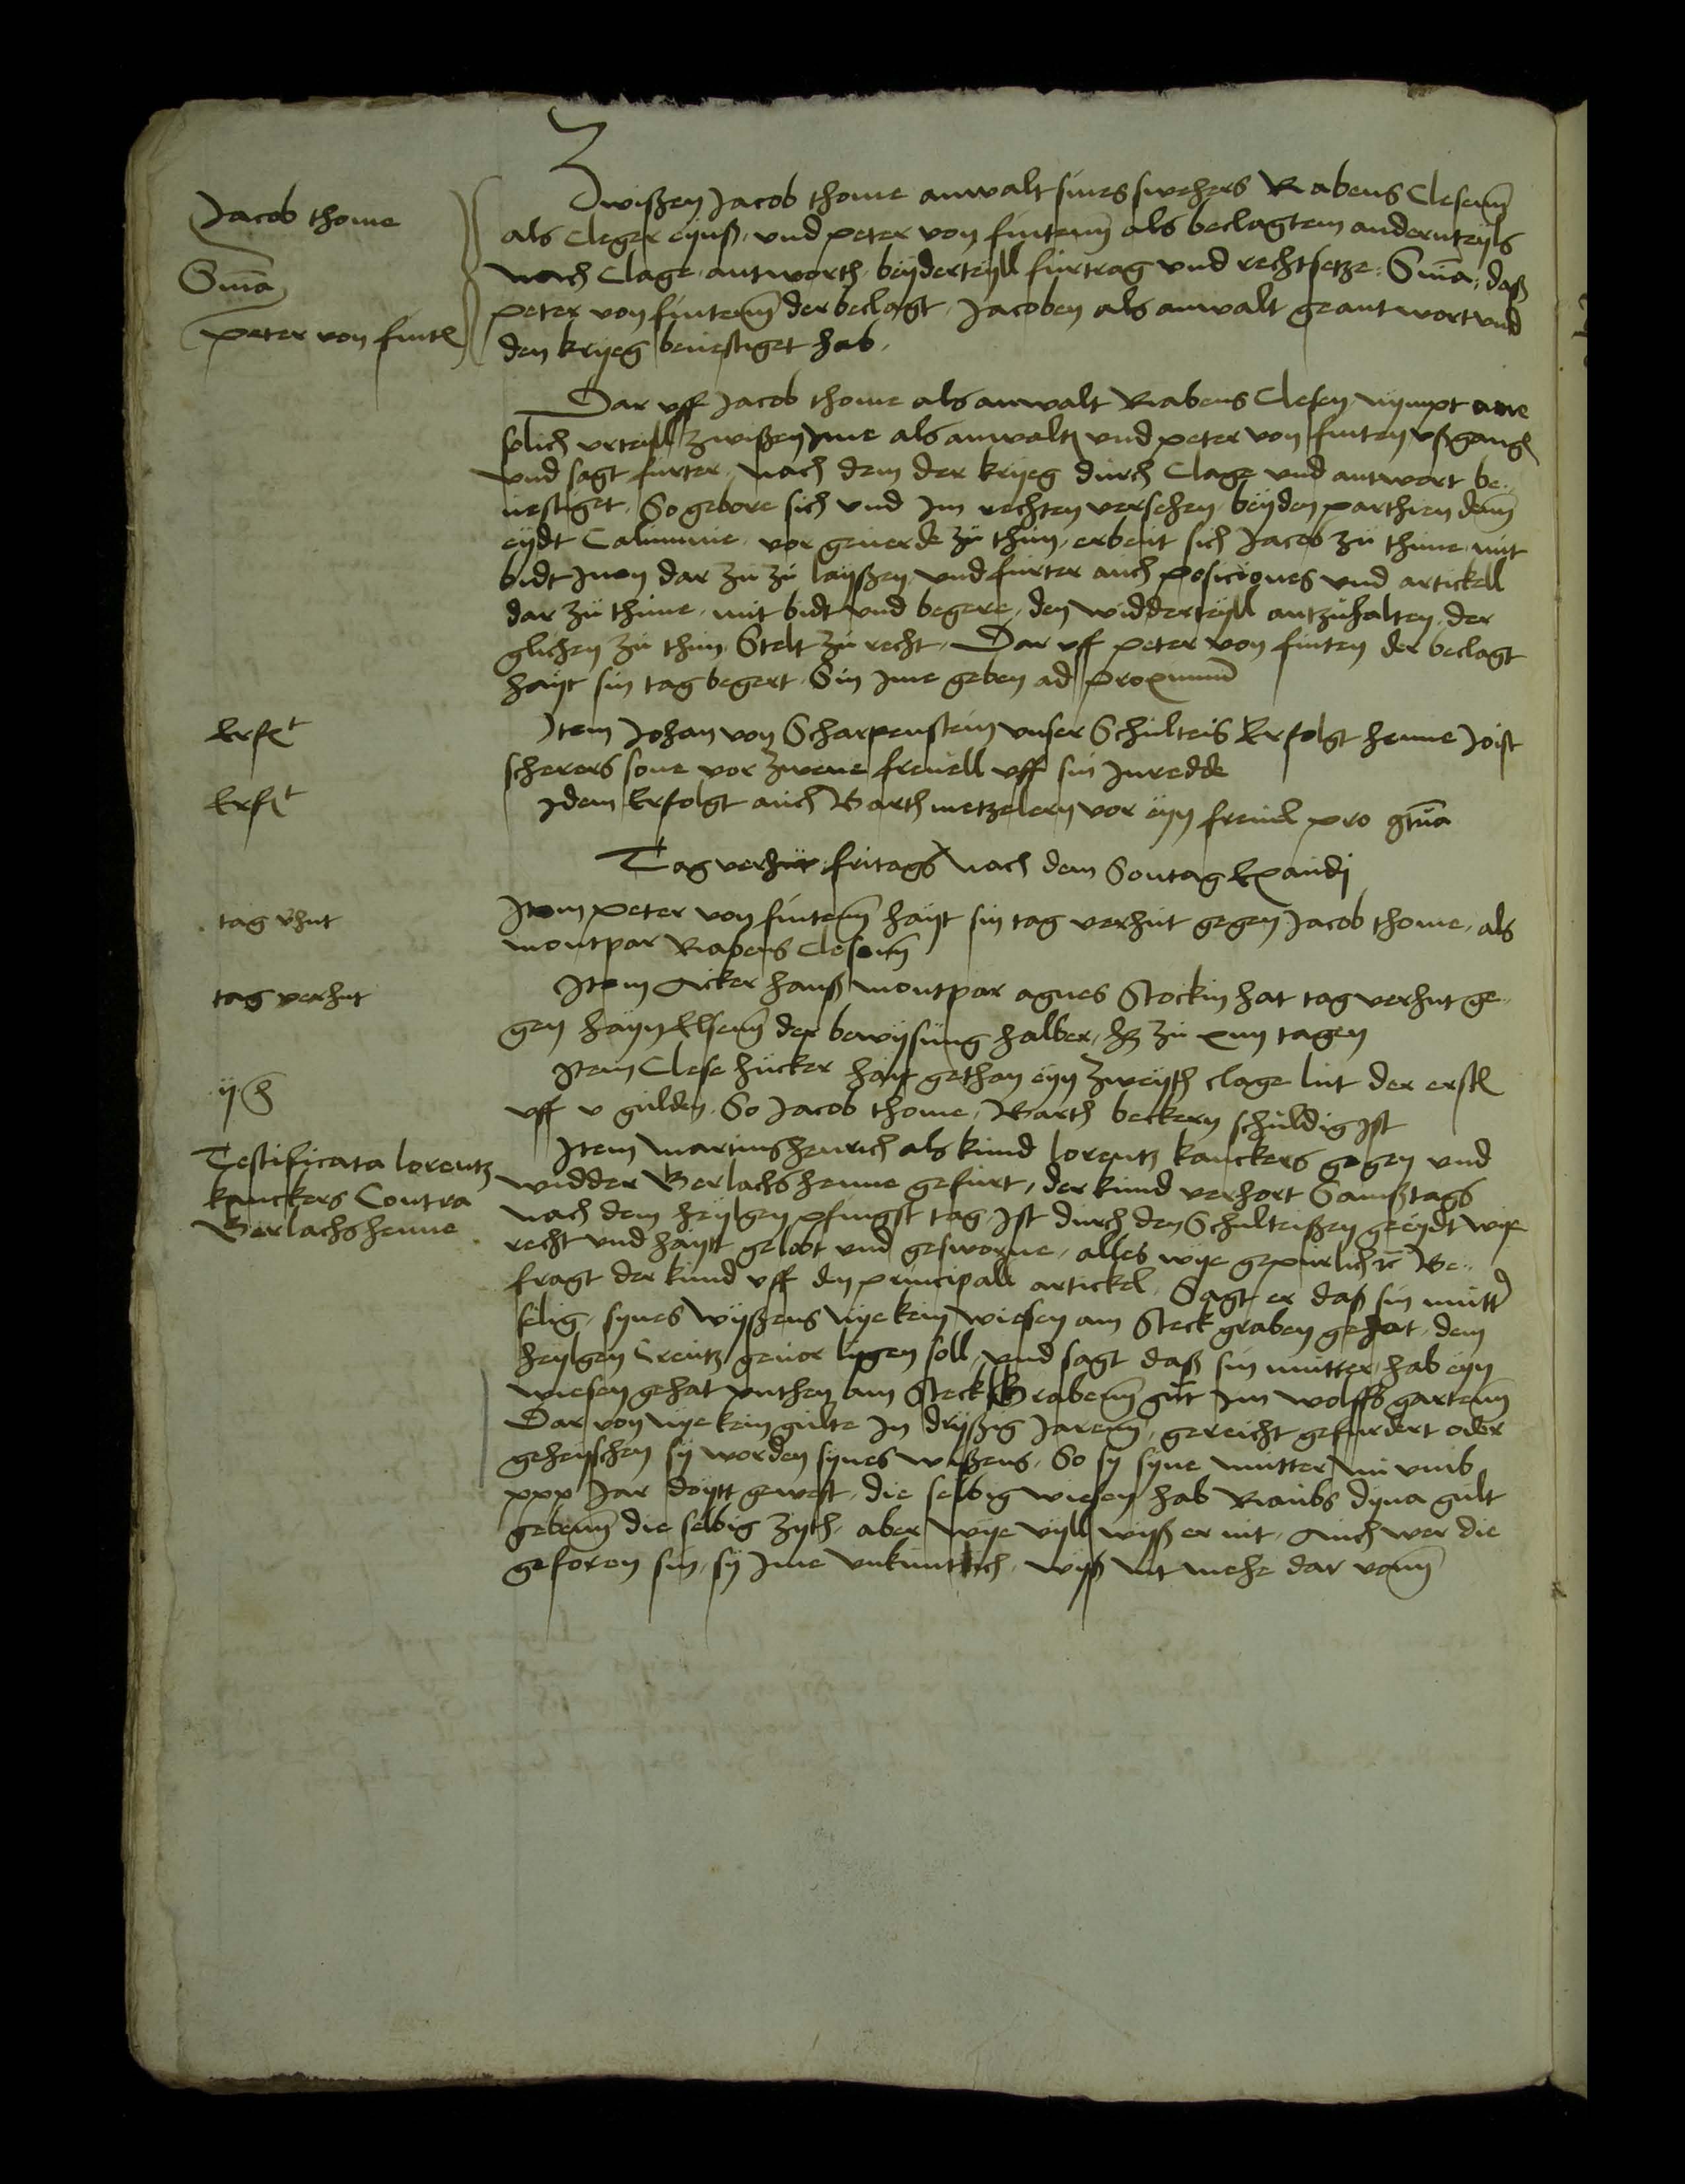 Jacob thome
Sñia
peter von fintē
Zwißen Jacob thome anwalt sines swehers Rabens Clesenn
als Cleger eynß, und peter von fintenn als beclagtem andernteyls
nach Clage, antworth, beyderteyll furtrag und rechtsetze. Sñia, daß
peter von fintenn der beclagt, Jacoben als anwalt geantwort und
den kryeg bevestiget hab.
Dar uff Jacob thome als anwalt Rabens Clesen, nympt ane
solich urteyll zwißen Ime als anwalt, und peter von finten ußgangē
und sagt furter, nach dem der kryeg durch Clage und antwort be„
vestiget, So gebore sich und Im rechten versehen, beyden parthien denn
eydt Calumnie, vor geverde zu thun, erbeut sich Jacob zu thune, mit
bidt Inen dar zu zu layßen, und furter auch posiciones und artickell
dar zu thune, mit bidt und begere, den widderteyll antzuhalten, der
glichen zu thun, Stelt zu recht. Dar uff peter von finten der beclagt
hayt sin tag begert. Sin Ime geben ad proximum
Erft
Item Johan von Scharpenstein unser Schulteis Erfolgt henne Joist
scherers sone vor zwene frevell uff sin Inredde
Erft
Idem Erfolgt auch Barth metzelern vor eyn frevel pro gtua
Tag verhut fritags nach dem Sontag Exaudi
tag v̾hut
Item peter von fintenn hayt sin tag verhut gegen Jacob thome, als
montpar Rabens Clesenn
tag verhut
Item Acker hanß montpar agnes Stockin hat tag verhut ge„
gen hayn Elsenn der bewysung halber, hz zu xiiij tagen
ij h
Item Clese hucker hayt gethan eyn zweyth clage lut der erstē
uff v gulden. So Jacob thome, Barth beckern schuldig Ist
Testificata lorentz
kanckers Contra
Gerlachs henne
Item martins henrich als kund lorentz kanckers gegen und
widder Gerlachs henne gefurt, der kund verhort Samßtags
nach dem heylgen pfingst tag, Ist durch den Schulteißen geeydt wye
recht und haytt gelobt und gesworne, alles wye gepurlich ꝛc Ge„
fragt der kund uff den principall artickel. Sagt er daß sin mutt̾
selig, synes wyßens nye kein wiesen am Steck graben gehat, dem
heylgen Creutz gevor ligen soll, und sagt daß sin mutter hab eyn
wiesen gehat unthen am Steck Grabenn gut Im wolffs gartenn
Dar von nye kein gulte In dryßig Jarenn, gereicht gefurdert oder
geheyschen sy worden synes wißens. So sy syne mutter nu umb
xxx Jar doytt gewest, die selbig wiesen hab Raubs dyna gult
gebenn die selbig zyth, aber wye vyll wiß er nit. Auch wer die
geforen sin, sy Ime unkuntlich, wyß nit mehe dar vonn